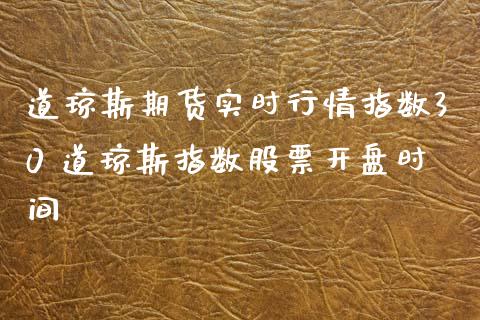 道琼斯期货实时行情指数3
0 道琼斯指数股票开盘时
间